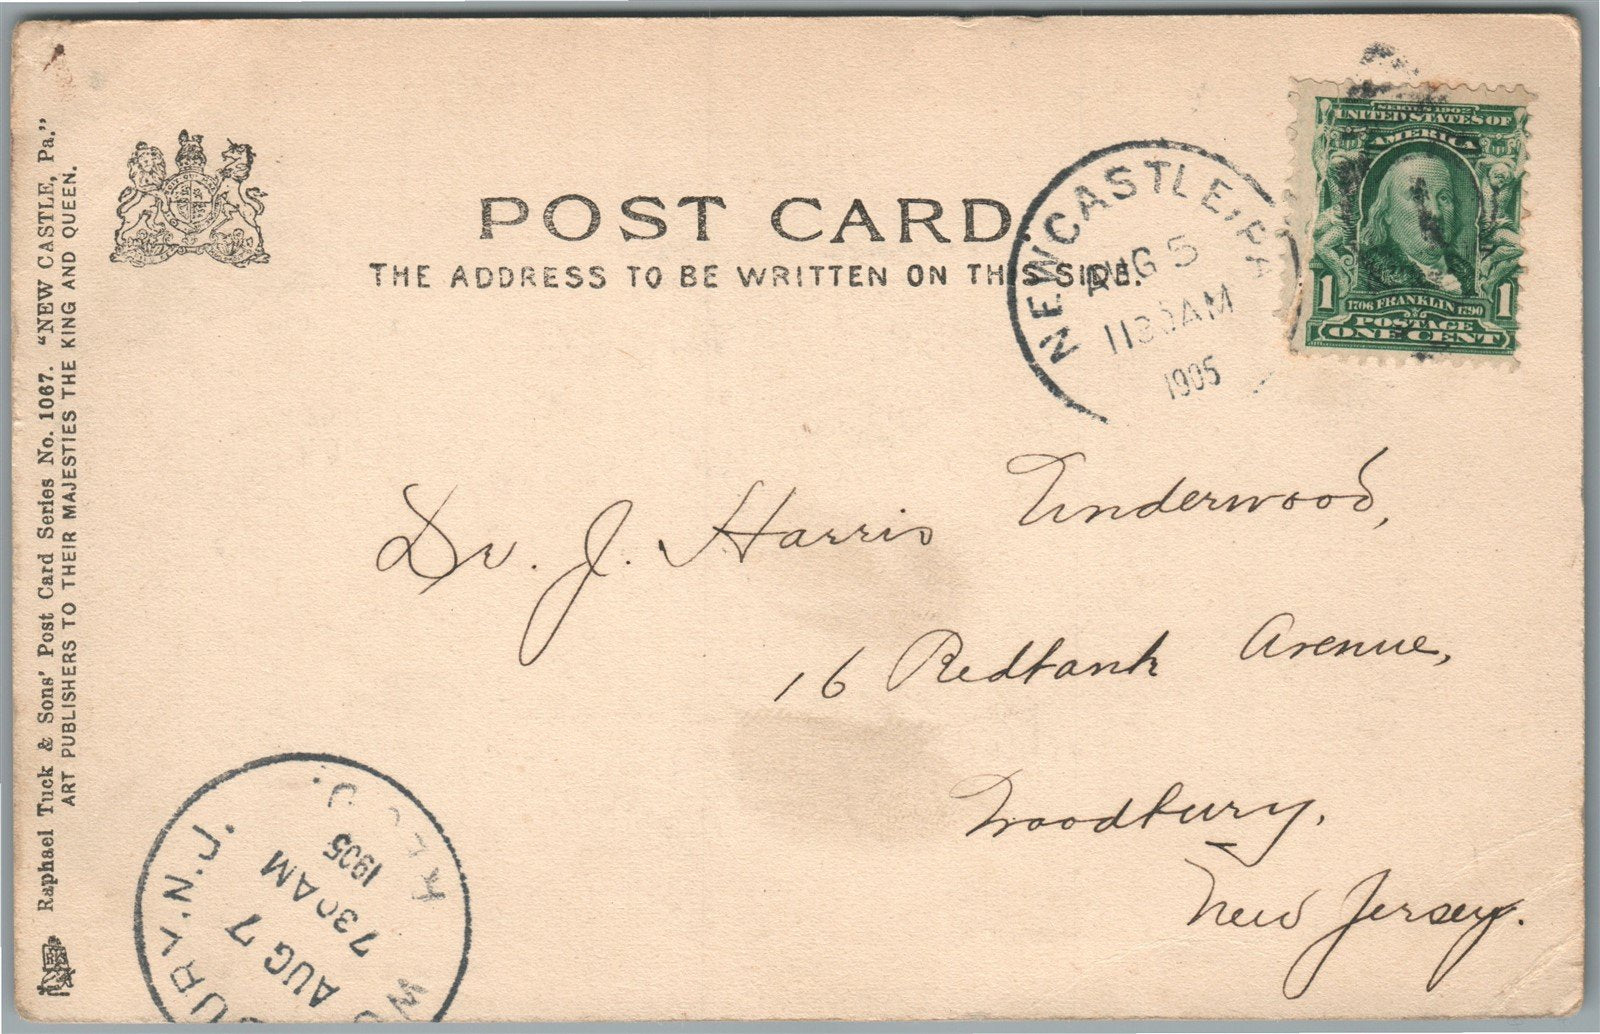 POST CARD.
THE ADDRESS TO BE WRITTEN ON THIS SIDE.
NEWCASTLE, PA
AUG 5
1130AM
1905
SERIES 1902
UNITED STATES OF
AMERICA
1706 FRANKLIN 1790
1 1
POSTAGE
ONE CENT
Dr. J. Harris Underwood,
16 Redbank Avenue,
Woodbury,
New Jersey.
Raphael Tuck & Sons' Post Card Series No. 1067. "NEW CASTLE, Pa."
ART PUBLISHERS TO THEIR MAJESTIES THE KING AND QUEEN.
AUG 7
730AM
1905
N.J.
REC'D.